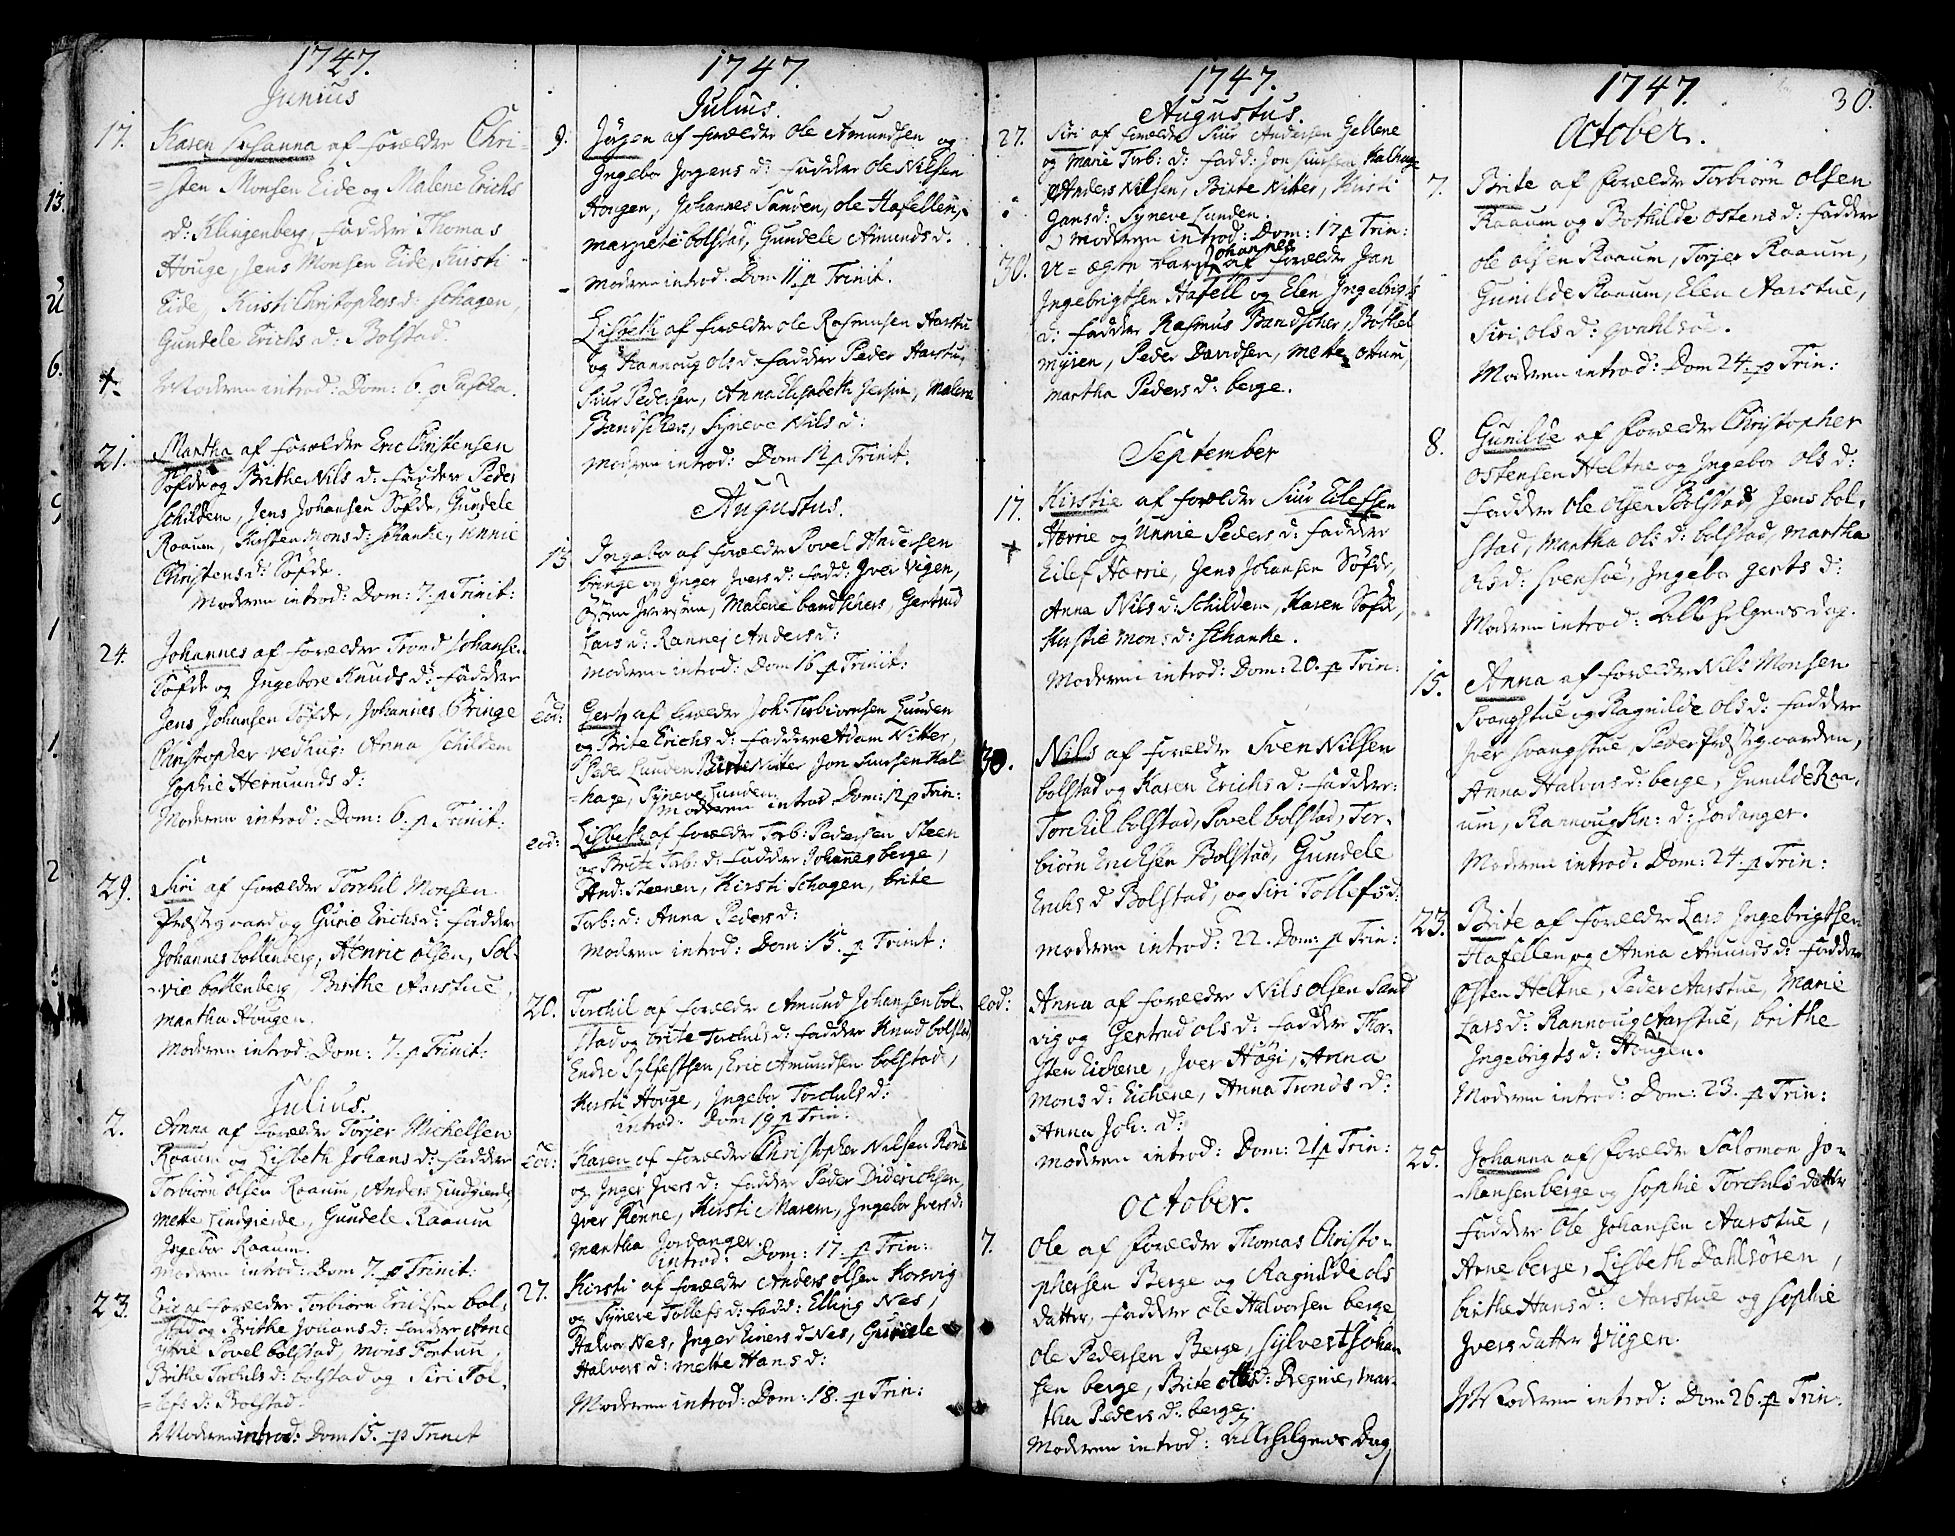 1747.
Junius
17. Karen Johanna af forældre Chri=
=sten Monsen Eide og Malene Erichs
d: Klingenberg, faddre Thomas
Houge, Jens Monsen Eide, Kirsti
Eide, Kirsti Christophers d: Schagen,
Gundele Erichs d: Bolstad.
Moderen introd: Dom: 6. p Pascha.
21. Martha af forældre Eric Christensen
Söfde og Brithe Nils d: faddre Peder
Schildem, Jens Johansen Söfde, Gundele
Raaum, Kirsten Mons d: Schanke, Unnie
Christens d: Söfde.
Moderen introd: Dom: 7. p Trinit:
24. Johannes af forældre Trond Johansen
Söfde og Ingebore Knuds d: faddre
Jens Johansen Söfde, Johannes Bringe
Christopher vedhus: Anna Schildem
Sophie Hermunds d:
Moderen introd: Dom: 6. p Trinit:
29. Siri af forældre Torchil Monsen
Præstgaard og Gurie Erichs d: faddre
Johannes bottenberg, Henric olsen, Sol-
vie bottenberg, Birthe Aarstue,
martha Hougen.
Moderen introd: Dom: 7. p Trinit:
Julius.
2. Anna af forældre Torjer Michelsen
Raaum og Lisbeth Johans d: faddre
Torbiörn olsen Raaum, Anders Lindgierde,
Mette Lindgierde, Gundele Raaum
Ingebor Raaum.
Moderen introd: Dom 7. p Trinit:
23. Eric af forældre Torbiörn Ericksen bol-
stad og Brithe Johans d: faddre Arne
Povel bolstad, mons Fortun,
Brithe Torchils d: bolstad og Siri Tol-
=lefs d: Bolstad.
Moderen introd: Dom 15. p Trinit
1747.
Julius.
9. Jörgen af forældre Ole Amundsen og
Ingebor Jorgens d: faddre Ole Nilsen
Hougen, Johannes Sunden, ole Hafellen,
margrete bolstad, Gundele Amunds d.
Moderen introd: Dom 11 p Trinit.
Lisbeth af forældre ole Rasmusen Aarstu
og Rannoug ols d faddre Peder Aarstu,
Siur Pedersen, Anna Elisabeth Jersin, Malene
Bandschers, Syneve Nils d:
Moderen introd: Dom 12 p Trinit.
Augustus.
13. Ingebor af forældre Povel Andersen
bringe og Inger Ivers d: fadd: Iver Vigen,
Iversen, Malene bandschers, Gertrud
Lars d: Rannej Anders d:
Moderen introd: Dom 16 p Trinit:
eod: Gert af forældre Joh: Torbiörnsen Lunden
og Brite Erichs d: faddre Adam Nitter,
Peder Lunden Birte Nitter Jon Siursen Kal
=hage, Syneve Lunden
Moderen introd Dom: 12 p Trin:
eod: Lisbeth af forældre Torb: Pedersen Steen
og Brite Torb: d: faddre Johannes berge,
And: Steenen, Kirsti Schagen, brite
Torb: d: Anna Peders d:
Moderen introd: Dom: 15. p Trinit:
20. Torchil af forældre Amund Johansen bol
stad og brite Torchils d: faddre Knud bolstad,
Endre Sylfestsen, Eric Amundsen bolstad,
Kirsti Houge, Ingebor Torchils d:
introd: Dom 19 p Trin:
eod: Karen af forældre Christopher Nilsen Rönne
og Inger Ivers d: faddre Peder Didericksen,
Iver Rönne, Kirsti Marem, Ingebor Ivers d:
martha Jordanger.
introd: Dom: 17. p Trin:
27. Kirsti af forældre Anders olsen Korsvig
og Syneve Tollefs d: fadd: Elling Nes,
Halvor Nes, Inger Einers d Nes, Gundele
Halvors d: mette Hans d:
Moderen introd: Dom: 18. p Trin:
1747.
Augustus.
27. Siri af forældre Siur Andersen Gellene
og Marie Torb: d: fadd: Jon Siursen Kalhage
Anders Nilsen, Birte Nitter, Kirsti
Jans d: Syneve Lunden.
Moderen introd: Dom: 17 p Trin:
30. U=ægte barn Johannes af forældre Jan
Ingebrigtsen Hafell og Elen Ingebrigts
d: faddre Rasmus Bandscher, Bothel
myren, Peder Davidsen, Mette otum,
martha Peders d: berge.
September
17. Kirstie af forældre Siur Eilefsen
Horrie og Unnie Peders d: faddre
Eilef Horrie, Jens Johansen Söfde,
Anna Nils d: Schildem, Karen Söfde,
Kirstie mons d: Schanke.
Moderen introd: Dom: 20. p Trin:
30. Nils af forældre Sven Nilsen
bolstad og Karen Erichs d: faddre:
Torchil bolstad, Povel bolstad, Tor-
biörn Ericksen Bolstad, Gundele
Erichs d Bolstad, og Siri Tollefs d:
moderen introd: 22. Dom: p Trin:
eod: Anna af forældre Nils olsen Sand
vig og Gertrud ols d: faddre Thor-
sten Eichene, Iver Högi, Anna
Mons d: Eichene, Anna Tronds d:
Anna Joh: d:
moderen introd: Dom: 21 p Trin:
October.
7. Ole af forældre Thomas Christo-
phersen Berge og Ragnilde ols
datter, faddre ole Halvorsen berge
Ole Pedersen Berge, Sylvest Johan
sen berge, Brite d: Dregnie, mar-
tha Peders d: berge.
Moderen introd: Alle helgens Dag
1747.
30.
October.
7. Brite af forældre Torbiörn olsen
Raaum og Bothilde ostens d: faddre
ole olsen Raaum, Torjer Raaum,
Gunilde Raaum, Elen Aarstue,
Siri ols d: qvahlsöe.
Moderen introd: Dom 24. p Trin:
8. Gunilde af forældre Christopher
ostensen Heltne og Ingebor ols d:
faddre ole olsen Bolstad, Jens bol-
stad, Martha ols d: bolstad, martha
ols d: svensöe, Ingebor gerts d:
Moderen introd: Alle helgens dag.
15. Anna af forældre Nils Monsen
Svangstue og Ragnilde ols d: faddre
Iver Svangstue, Peder Præstgaarden,
Anna Halvors d: berge, Gunilde Raa-
um, Rannoug Kn: d: Jordanger.
Moderen introd: Dom: 24. p Trin:
23. Brite af forældre Lars Ingebrigtsen
Hafellen og Anna Amunds d: faddre
Östen Heltne, Peder Aarstue, Marie
Lars d: Rannoug Aarstue, brithe
Ingebrigts d: Hougen.
Moderen introd: Dom: 23. p Trin:
25. Johanna af forældre Salomon Jo-
=hansen berge og Sophie Torchils datter
faddre Ole Johansen Aarstue,
Arne berge, Lisbeth Dahlsören,
brithe Hans d: Aarstue og Sophie
Ivers datter Viigen.
Moderen introd: Dom 26. p Trin.